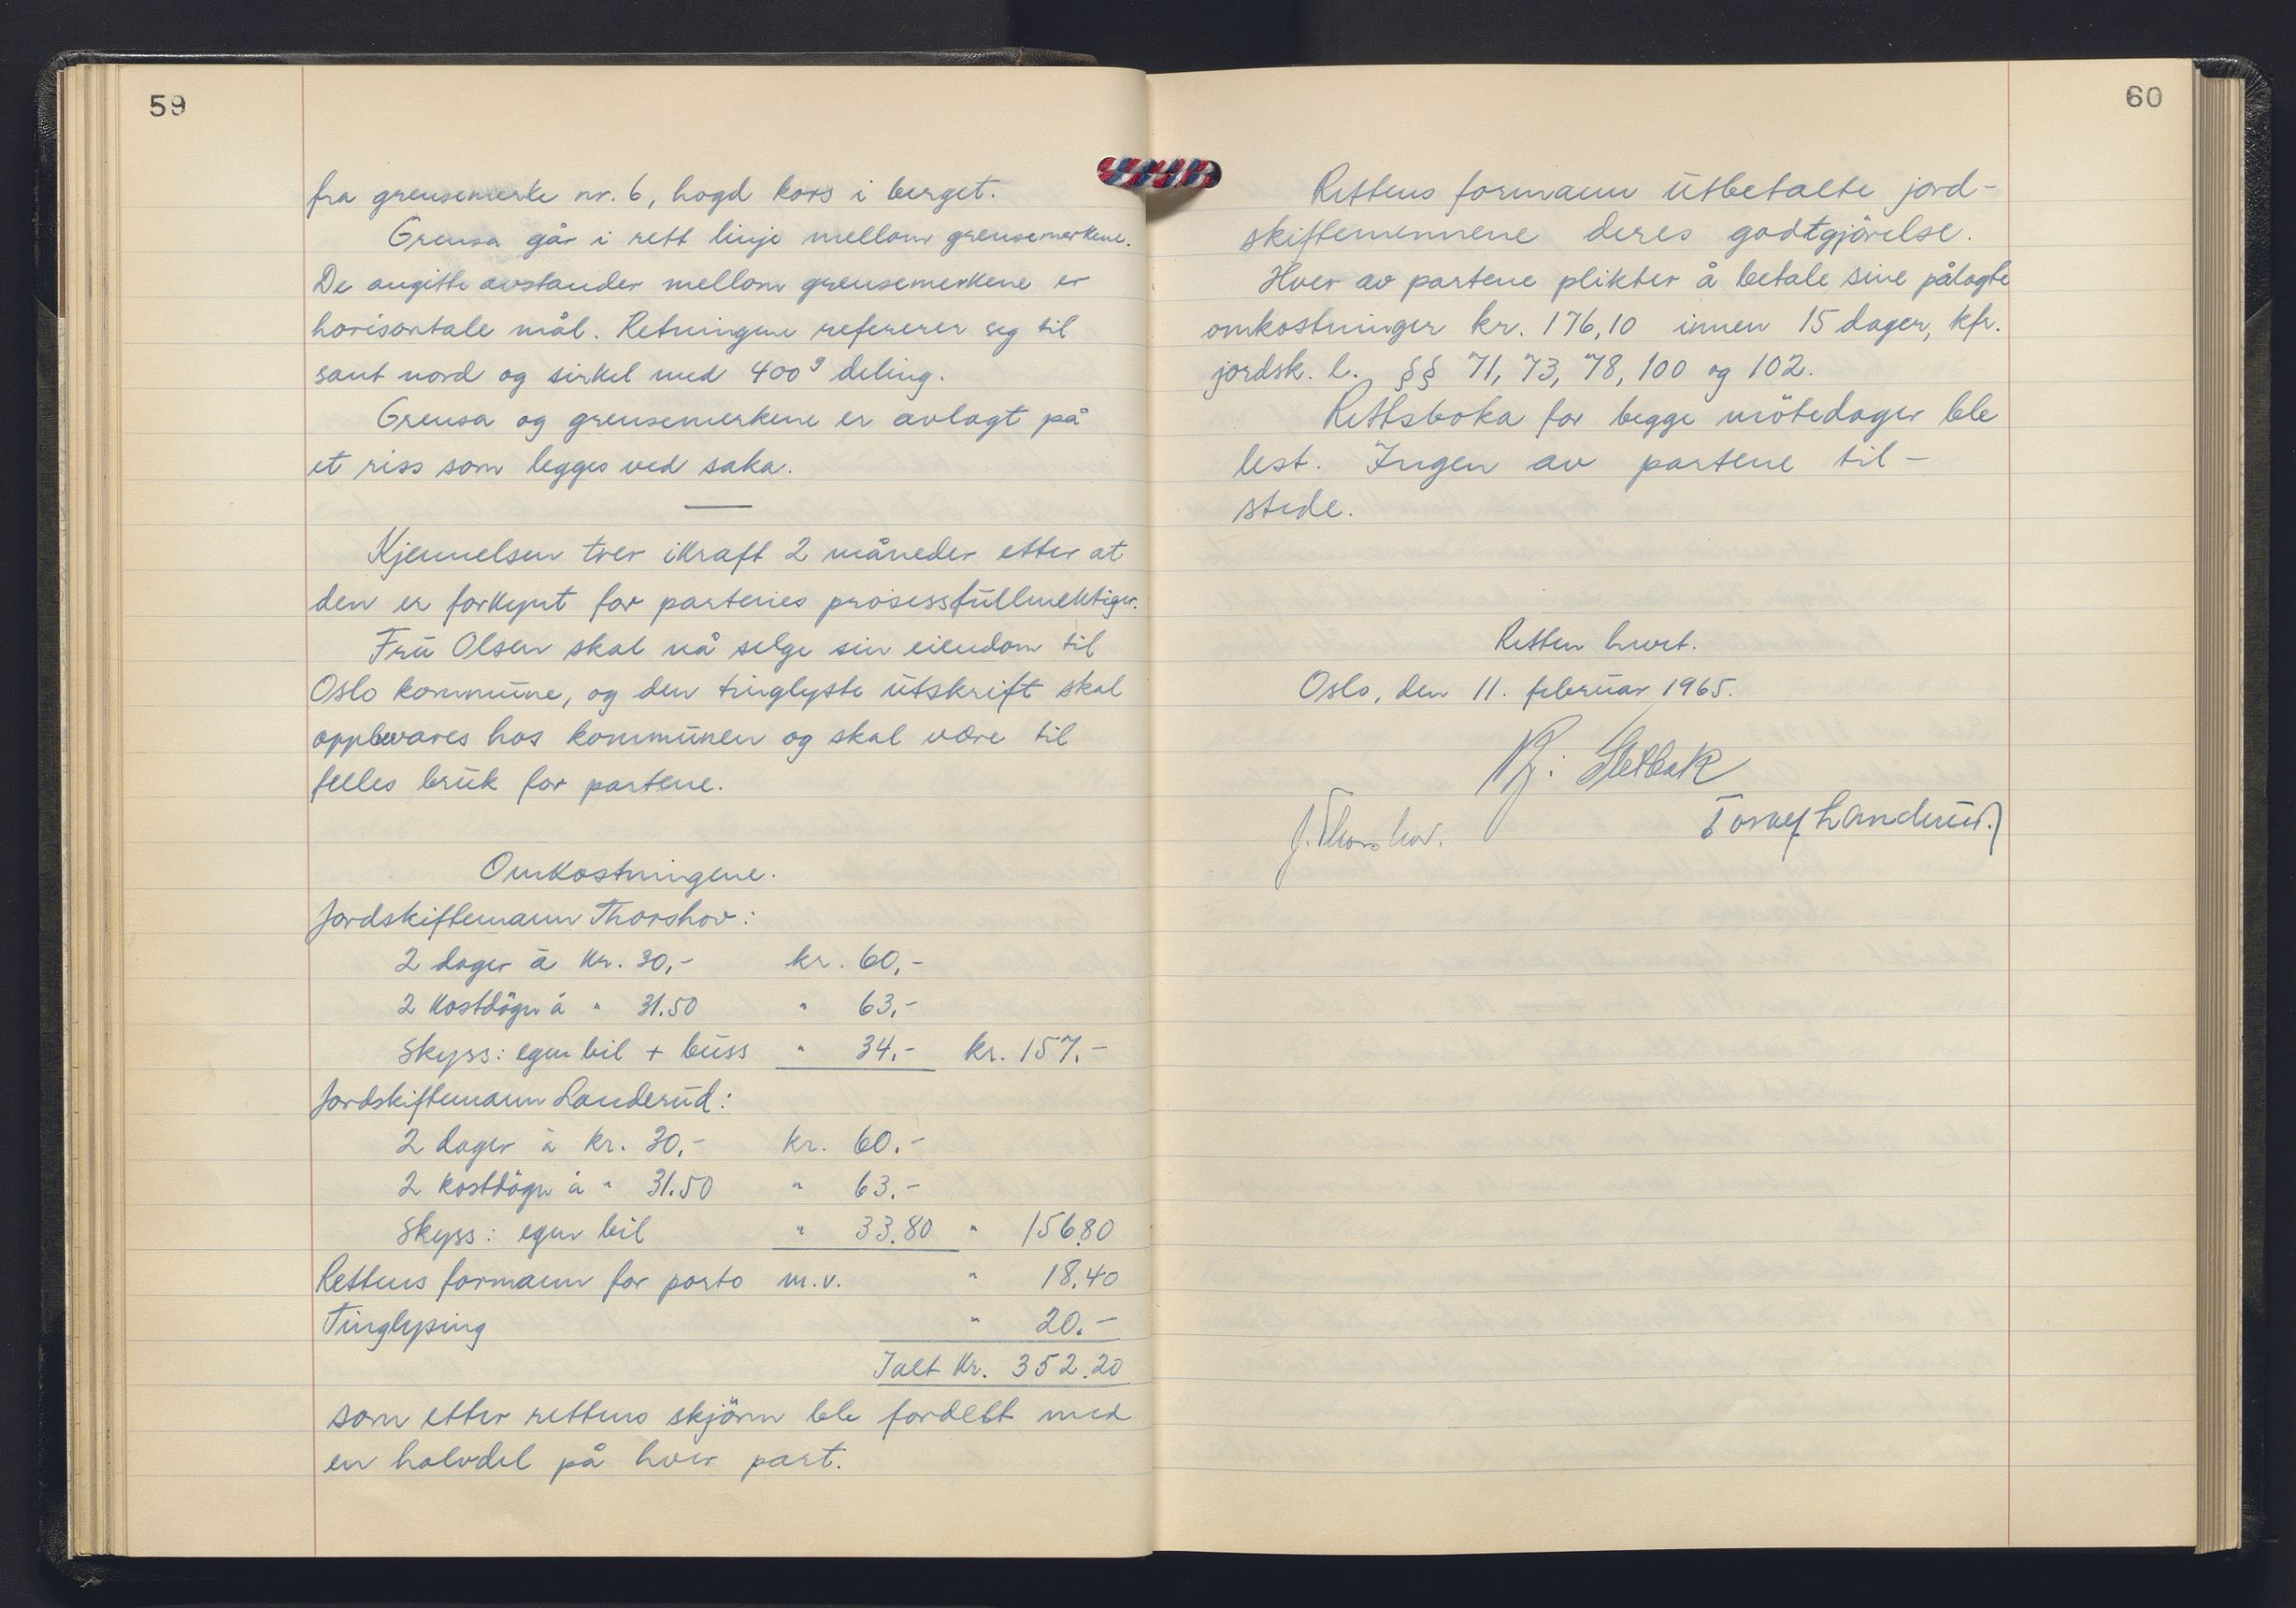 59
fra grensemerke nr. 6, hogd kors i berget.
Grensa går i rett linje mellom grensemerkene.
De angitte avstander mellom grensemerkene er
horisontale mål. Retningene refererer seg til
sant nord og sirkel med 400g deling.
Grensa og grensemerkene er avlagt på
et riss som legges ved saka.
Kjennelsen trer ikraft 2 måneder etter at
den er forkynt for partenes prosessfullmektiger.
Fru Olsen skal nå selge sin eiendom til
Oslo kommune, og den tinglyste utskrift skal
oppbevares hos kommunen og skal være til
felles bruk for partene.
Omkostningene.
Jordskiftemann Thorshov:
2 dager à kr. 30,- kr. 60,-
2 kostdögn à " 31.50 " 63,-
Skyss: egen bil + buss " 34.- kr. 157.-
Jordskiftemann Landerud:
2 dager à kr. 30.- kr. 60.-
2 kostdögn à " 31.50 " 63.-
Skyss: egen bil " 33.80 " 156.80
Rettens formann for porto m.v. " 18.40
Tinglysing " 20.-
Ialt kr. 352.20
som etter rettens skjönn ble fordelt med
en halvdel på hver part.
60
Rettens formann utbetalte jord-
skiftemennene deres godtgjörelse.
Hver av partene plikter å betale sine pålagte
omkostninger kr. 176,10 innen 15 dager, kfr.
jordsk. l. §§ 71, 73, 78, 100 og 102.
Rettsboka for begge mötedager ble
lest. Ingen av partene til-
stede.
Retten hevet.
Oslo, den 11. februar 1965.
J. Thorshov.
Landerud